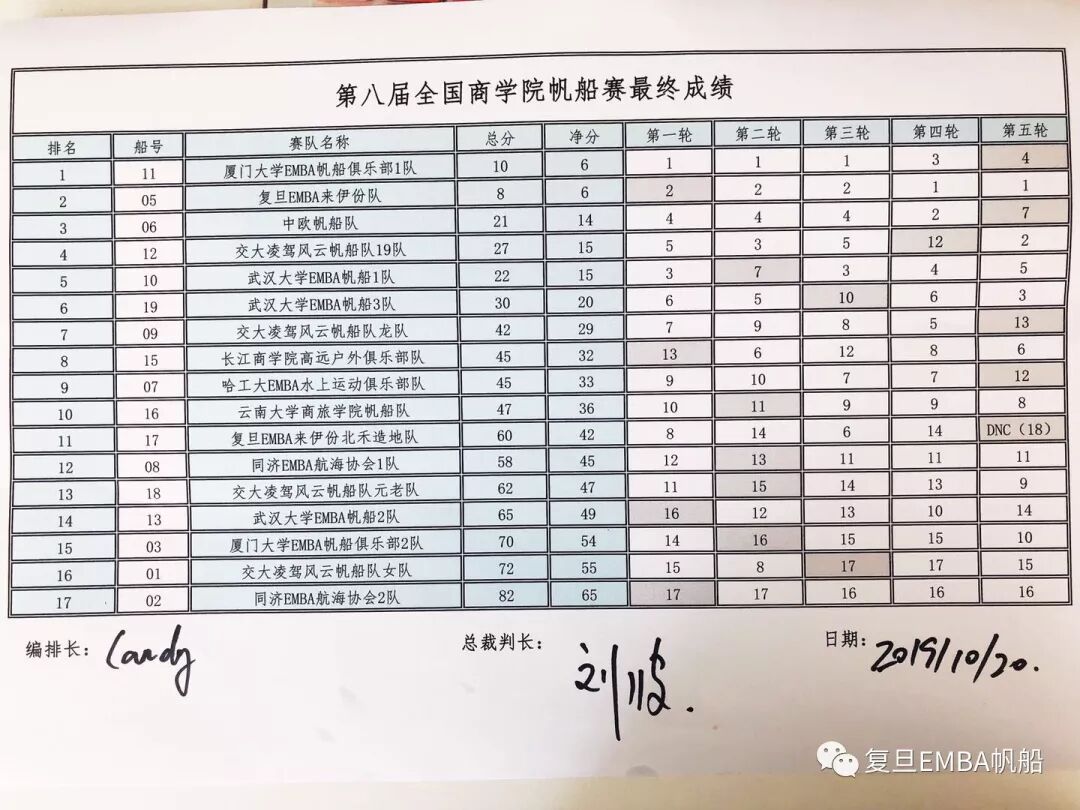 第八届全国商学院帆船赛最终成绩
排名 船号 赛队名称 总分 净分 第一轮 第二轮 第三轮 第四轮 第五轮
1 11 厦门大学EMBA帆船俱乐部1队 10 6 1 1 1 3 4
2 05 复旦EMBA来伊份队 8 6 2 2 2 1 1
3 06 中欧帆船队 21 14 4 4 4 2 7
4 12 交大凌驾风云帆船队19队 27 15 5 3 5 12 2
5 10 武汉大学EMBA帆船1队 22 15 3 7 3 4 5
6 19 武汉大学EMBA帆船3队 30 20 6 5 10 6 3
7 09 交大凌驾风云帆船队龙队 42 29 7 9 8 5 13
8 15 长江商学院高远户外俱乐部队 45 32 13 6 12 8 6
9 07 哈工大EMBA水上运动俱乐部队 45 33 9 10 7 7 12
10 16 云南大学商旅学院帆船队 47 36 10 11 9 9 8
11 17 复旦EMBA来伊份北禾造地队 60 42 8 14 6 14 DNC（18）
12 08 同济EMBA航海协会1队 58 45 12 13 11 11 11
13 18 交大凌驾风云帆船队元老队 62 47 11 15 14 13 9
14 13 武汉大学EMBA帆船2队 65 49 16 12 13 10 14
15 03 厦门大学EMBA帆船俱乐部2队 70 54 14 16 15 15 10
16 01 交大凌驾风云帆船队女队 72 55 15 8 17 17 15
17 02 同济EMBA航海协会2队 82 65 17 17 16 16 16
编排长： Candy 总裁判长： 刘波. 日期： 2019/10/20.
复旦EMBA帆船